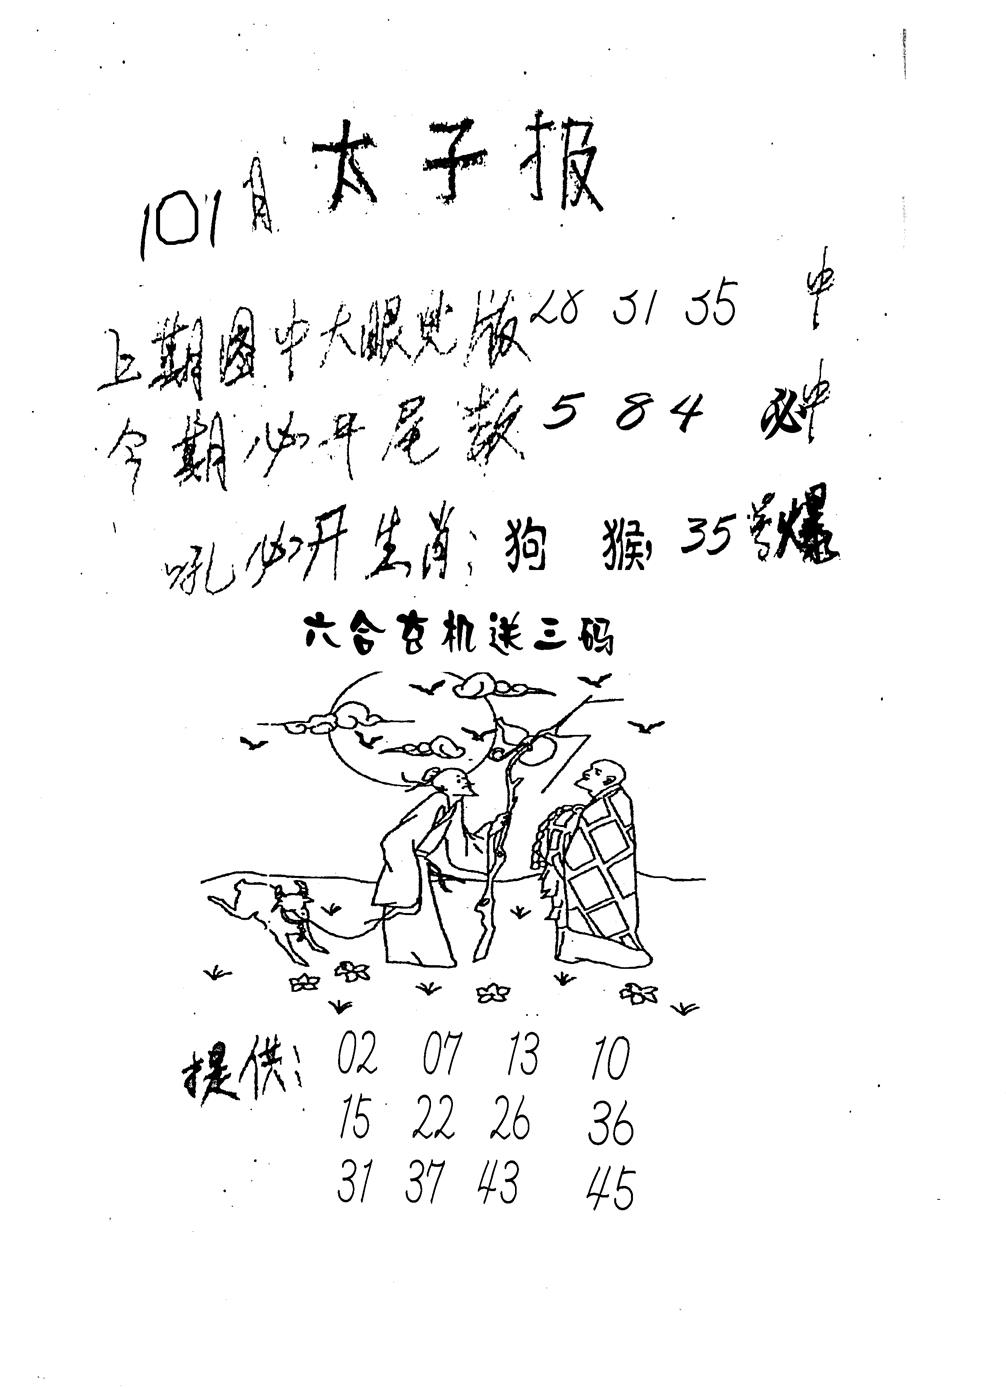 太子报
101月
上期图中大眼见版28 31 35 中
今期必开尾数5 8 4 必中
吼必开生肖: 狗 猴, 35号爆
六合玄机送三码
提供: 02 07 13 10
15 22 26 36
31 37 43 45